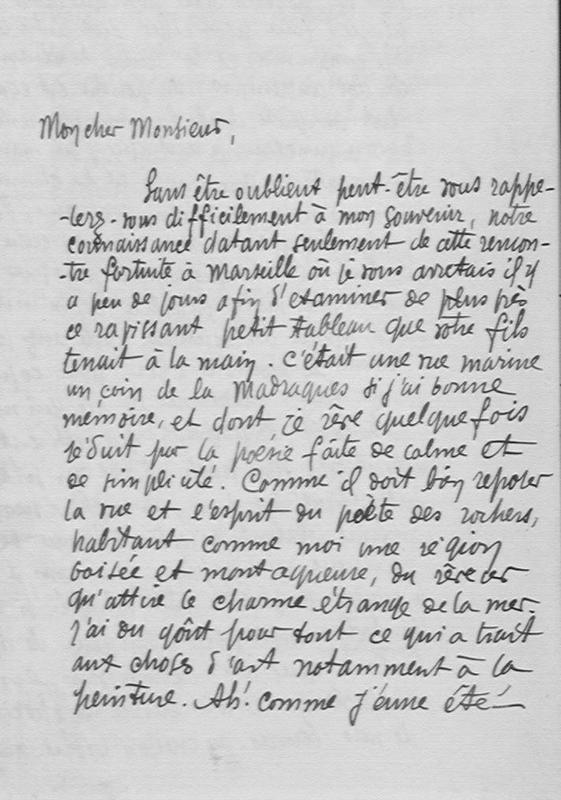 Mon cher Monsieur,
Sans être oublient peut-être vous rappe-
-lerz-vous difficilement à mon souvenir, notre
connaissance datant seulement de cette rencon-
-tre fortuite à Marseille où je vous arretais il y
a peu de jours afin d'examiner de plus près
ce ravissant petit tableau que votre fils
tenait à la main. C'était une vue marine
un coin de la Madragues si j'ai bonne
mémoire, et dont je rêve quelquefois
séduit par la poésie faite de calme et
de simplicité. Comme il doit bon reposer
la vue et l'esprit du poète des rochers,
habitant comme moi une région
boisée et montagneuse, du rêveur
qu'attire le charme étrange de la mer.
J'ai du goût pour tout ce qui a trait
aux choses d'art notamment à la
peinture. Ah! comme j'eune été—